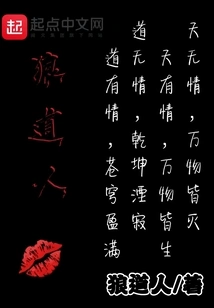 起点中文网
起
天无情，万物皆灭
天有情，万物皆生
道无情，乾坤湮寂
道有情，苍穹盈满
道人
狼道人/著